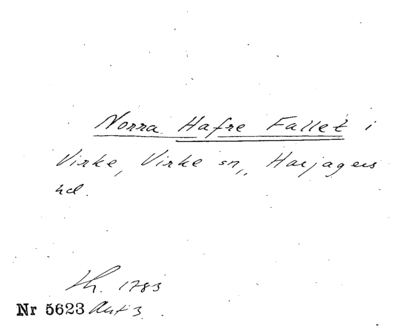 Norra Hafre Fallet i
Virke, Virke sn, Harjagers
hd.
Lh. 1783
Nr 5623 Akt 3.